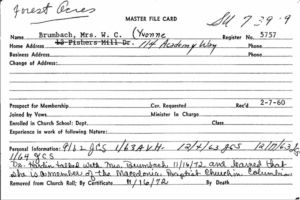 Forest Acres
MASTER FILE CARD
SU 7-39-9
Name Brumbach, Mrs. W. C. (Yvonne Register No. 5757
Home Address 10 Fishers Mill Dr. 114 Academy Way Phone
Business Address Phone
Change of Address:
Prospect for Membership Cor. Requested Rec'd 2-7-60
Joined by Vows Minister in Charge
Enrolled in Church School: Dept. Class
Experience in work of following Nature:
Personal Information: 9/62 JCS 1/63 AVH 12/4/63 JCS 12/17/63
1/64 JCS
Dr. talked with Mrs. Brumbach 11/14/72 and learned that
she is a member of the Macedonia Baptist Church in Columbia
Removed from Church Roll: By Certificate 11/16/72 By Death